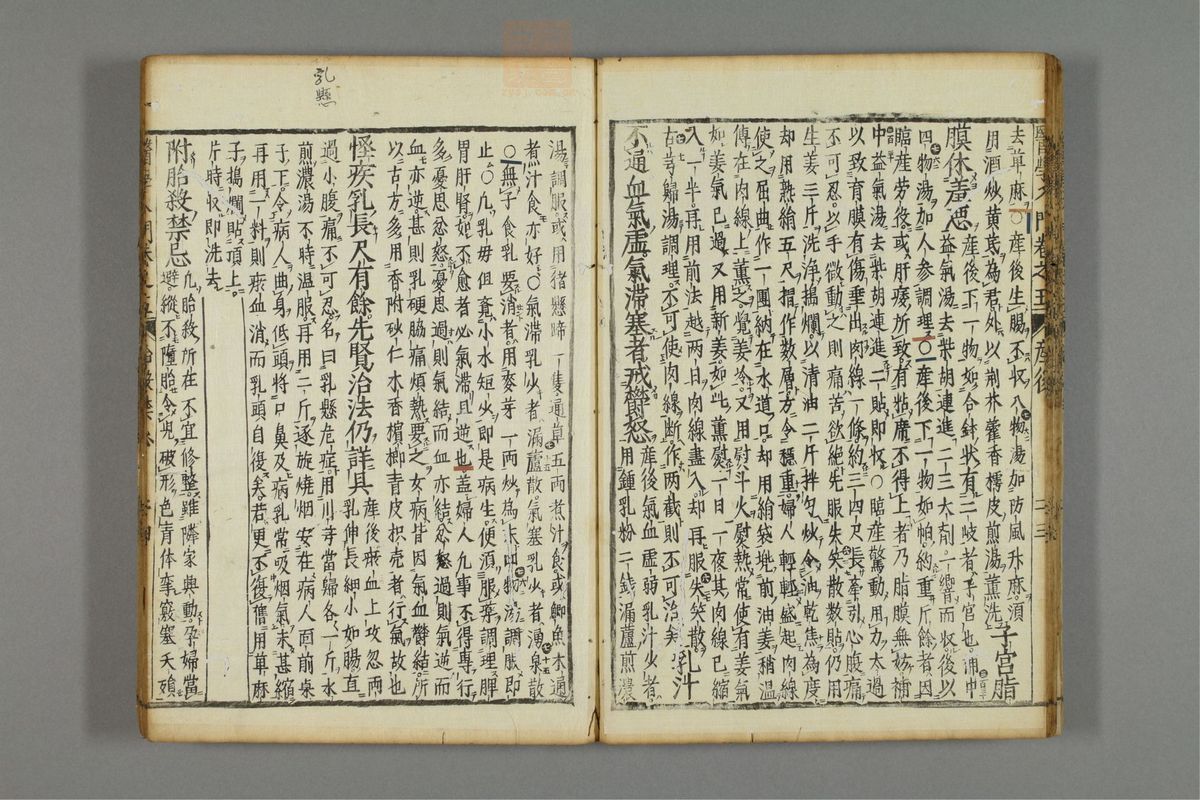 去草麻○產後生腸不收八物湯加防風升麻須
用酒炒黃芪為君外以荆芥藿香樗皮煎湯薰洗子宮脂
膜休產惡產後下一物如合鉢狀有二岐者子宮也補中
益氣湯去柴胡連進二三大劑一響而收後以
四物湯加人參調理○產後下一物如帕約重斤餘者因
臨產勞役或肝痿所致有粘席不得上者乃脂膜無妨補
中益氣湯去柴胡連進二貼即收○臨產驚動用力太過
以致育膜有傷垂出肉線一條約三四尺長牽引心腹痛
不可忍以手微動之則痛苦欲絕先服失笑散數貼仍用
生姜三斤洗淨搗爛以清油二斤拌勻炒令油乾焦為度
却用熟絹五尺摺作數層方令穩重婦人輕輕盛起肉線
使之屈曲作一團納在水道口却用絹袋兠前油姜稍溫
傅在肉線上薰之覺姜冷又用熨斗火熨熱常使有姜氣
如姜氣已過又用新姜如此薰熨一日一夜其肉線已縮
入一半再用前法越兩日肉線盡入却再服失笑散
古芎歸湯調理不可使肉線斷作兩截則不可治矣乳汁
不通血氣虛氣滯塞者戒欝怒產後氣血虛弱乳汁少者
用鍾乳粉二錢漏蘆煎濃
湯調服或用猪懸蹄一隻通草五兩煮汁食或鯽魚木通
煮汁食亦好○氣滯乳少者漏蘆散氣塞乳少者湧泉散
○無子食乳要消者用麥芽一兩炒為末四物湯調服即
止○凡乳母但覺小水短少即是病生便須服藥調理脾
胃肝腎如不愈者必氣滯且逆也蓋婦人凡事不得專行
多憂思忿怒憂思過則氣結而血亦結忿怒過則氣逆而
血亦逆甚則乳硬脇痛煩熱要之女病皆因氣血欝結所
以古方多用香附砂仁木香檳榔青皮枳壳者行氣故也
怪疾乳長尺有餘先賢治法仍詳具產後瘀血上攻忽兩
乳伸長細小如腸直
過小腹痛不可忍名曰乳懸危症用川芎當歸各一斤水
煎濃湯不時溫服再用二斤逐旋燒烟安在病人面前桌
子下令病人曲身低頭將口鼻及病乳常吸烟氣未甚縮
再用一料則瘀血消而乳頭自復矣若更不復舊用草麻
子搗爛貼頂上
片時收即洗去
附胎殺禁忌凡胎殺所在不宜修整雖隣家興動孕婦當
避縱不墮胎令兒破形色青体攣竅塞夭殞
乳懸